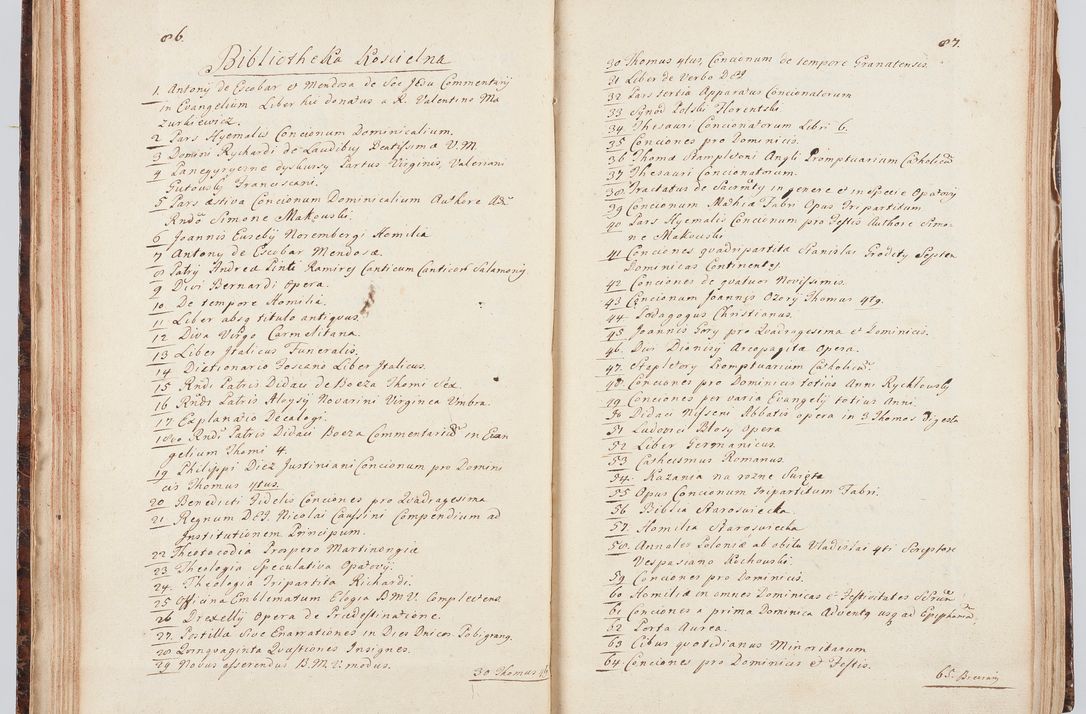 86.
Bibliotheka Koscielna
1. Antony de Escobar et Mendoza de Soc Jesu Commentarij
in Evangelium Liber hic donatus a R. Valentino Ma
zurkiewicz.
2 Pars Hyemalis Concionum Dominicalium.
3 Domini Rychardi de Laudibus Beatissimæ V. M.
4 Panegyryczne dyskursy Partus Virginis, Valeriani
Gutowski Franciscani.
5 Pars æstiva Concionum Dominicalium Authore
Rndo Simone Makowski.
6 Joannis Eusebij Norembergi Homilia
7 Antony de Escobar Mendosæ.
8 Patrij Andreæ Pinti Ramirez Canticum Canticor Salamonis
9 Divi Bernardi Opera.
10. De tempore Homilia.
11 Liber absq titulo antiquus.
12 Diva Virgo Carmelitana.
13 Liber Italicus Funeralis.
14 Dictionario Toscano Liber Italicus.
15 Rndi Patris Didaci de Baeza Thomi Sex.
16 Rndi Patris Aloysij Novarini Virginea Umbra.
17 Explanatio Decalogi.
18 Rndi Patris Didaci Baeza Commentaria in Evan
gelium Thomi 4.
19 Philippi Diez Justiniani Concionum pro Domini
cis Thomus 4tus.
20 Benedicti Fidelis Conciones pro Quadragesima
21 Regnum DEI. Nicolai Caussini Compendium ad
Institutionem Principum.
22 Theotocodia Prospero Martinengia
23 Theologia Speculativa Opatovij.
24. Theologia Tripartita Richardi.
25 Officina Emblematum Elogia B. M. V. Complectens
26 Drexelly Opera de Prædestinatione.
27. Postilla Sive Enarrationes in Dies Dnicos Pobigrang.
28 Quinquaginta Quæstiones Insignes.
29 Novus offerendus B. M. V. modus.
30 Thomus 4tus
87.
30 Thomus 4tus Concionum de tempore Granatensis.
31 Liber de Verbo DEI
32 Pars tertia Apparatus Concionatorum
33 Synod Polski Florentski.
34. Thesauri Concionatorum Libri 6.
35 Conciones pro Dominicis.
36 Thomæ Stampletoni Angli Promptuarium Catholicum
37 Thesauri Concionatorum.
38 Tractatus de Sacramentis in genere et in Specie Opatovij
39 Concionum Mathia Fabri Opus Tripartitum
40 Pars Hyemalis Concionum pro Festis Authore Simo-
ne Makowski
41 Conciones quadripartita Stanislai Grodicij Septem
Dominicas Continentes
42 Conciones de quatuor Novissimis.
43 Concionum Joannis Ozory Thomus 4tg.
44 Pedagogus Christianus.
45 Joannis Gory pro Quadragesima et Dominicis.
46 Divi Dionisij Areopagita Opera.
47 Stapletory Promptuarium Catholicum.
48 Conciones pro Dominicis totius Anni Rychlowskij
49 Conciones per varia Evangelij totius Anni.
50 Didaci Nisseni Abbatis opera in 3 Thomos Digesta
51 Ludovici Blosy Opera
52 Liber Germanicus.
53 Cathecismus Romanus.
54. Kazania na rozne Swięta
55 Opus Concionum Tripartitum Fabri.
56 Biblia Staroswiecka.
57. Homilia Staroswiecka
58. Annales Poloniæ ab obitu Vladislai 4ti Scriptore
Vespasiano Kochowski.
59 Conciones pro Dominicis.
60 Homiliæ in omnes Dominicas et Festivitates
61 Conciones a prima Dominica Adventus usq ad Epiphaniam
62 Porta Aurea.
63 Cibus quotidianus Minoritarum
64 Conciones pro Dominicis et Festis.
65. Breviarij